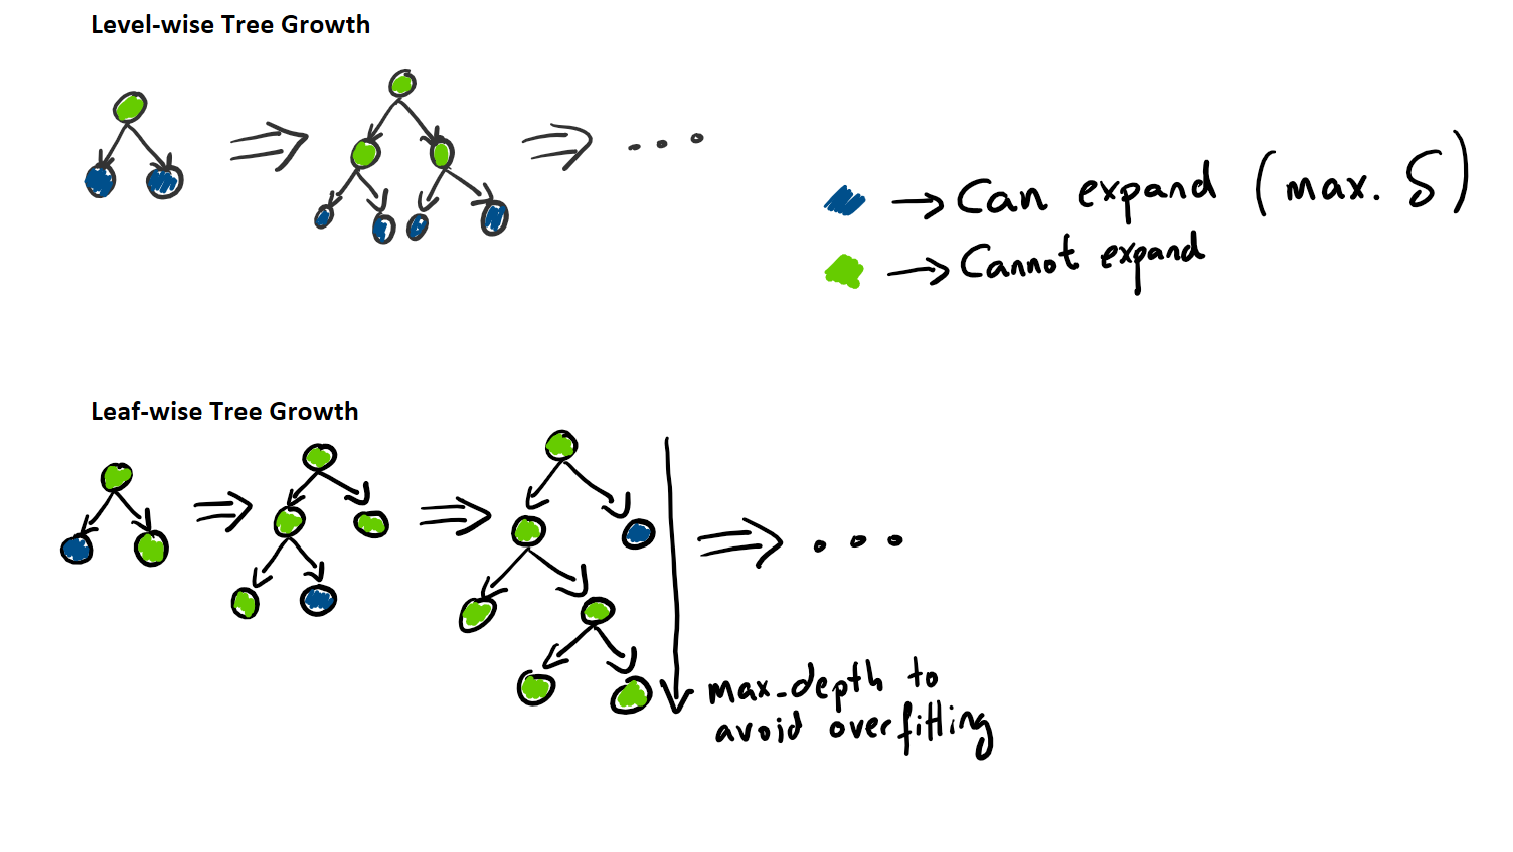 Level-wise Tree Growth
Can expand (max. δ)
Cannot expand
Leaf-wise Tree Growth
max_depth to
avoid overfitting